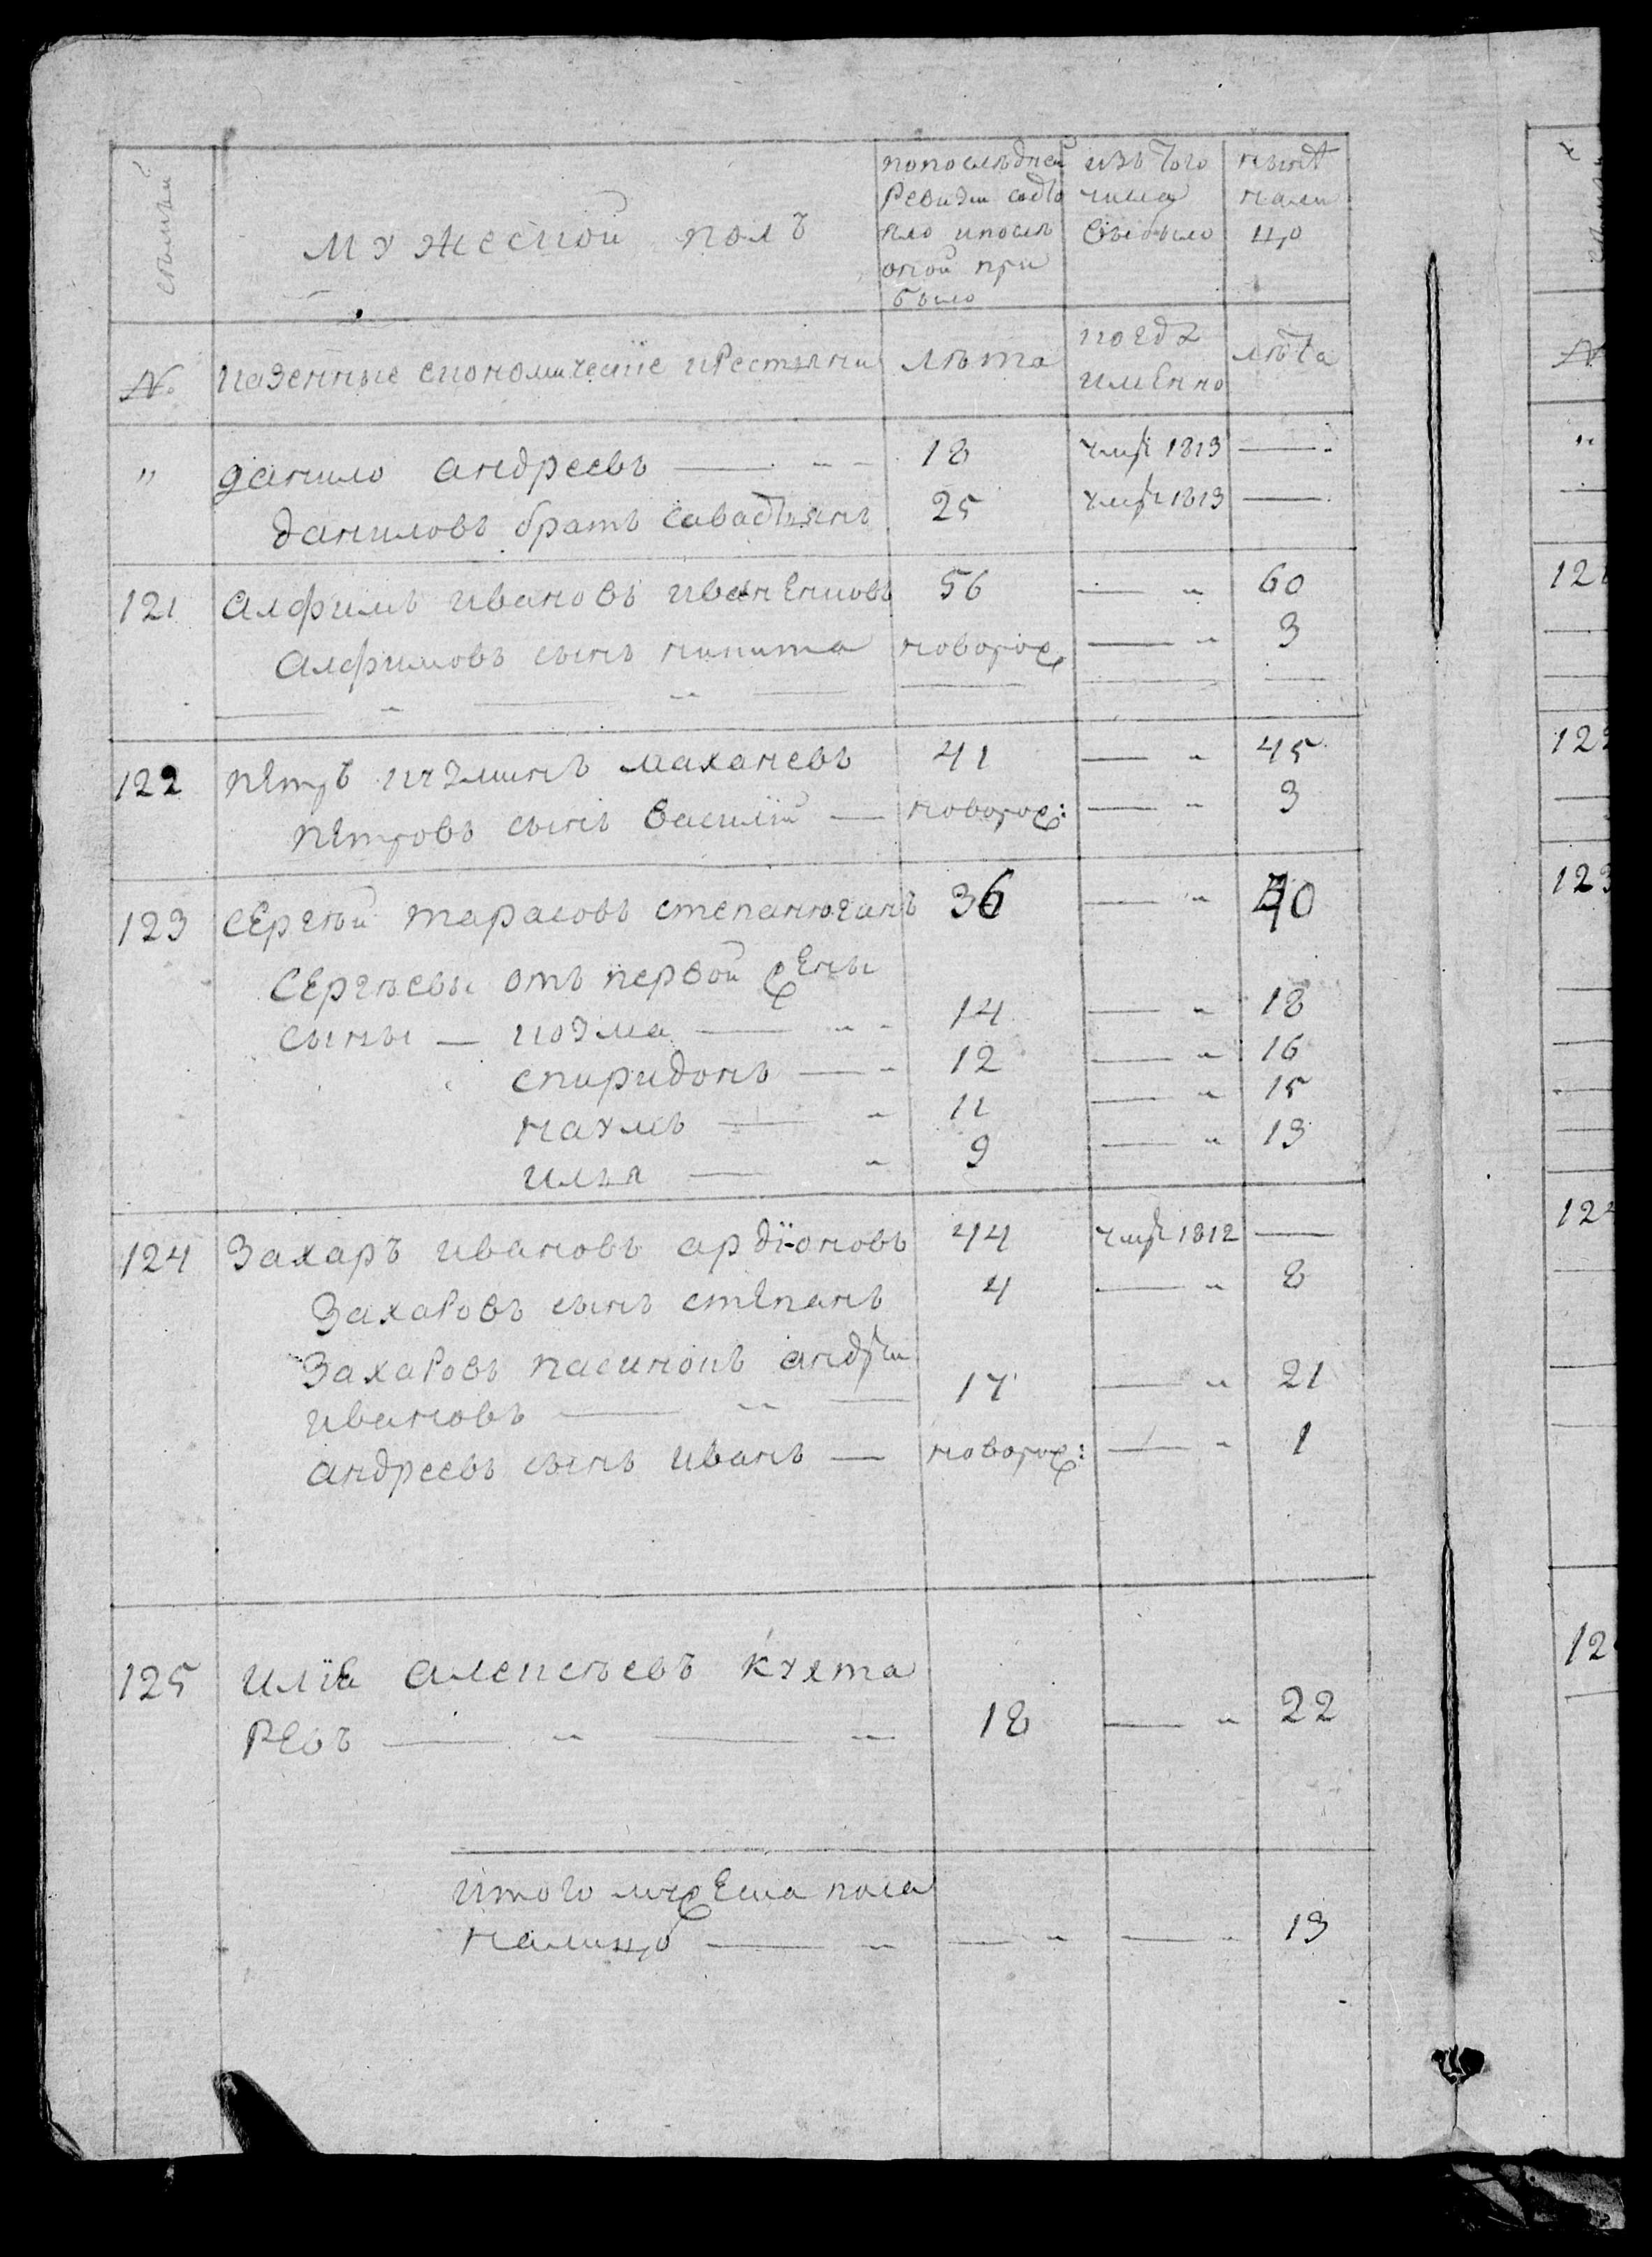 семьи мужеской полъ попоследней изъ того ныне
Ревизи состо числа нали
яло ипосле выбыло цо
оной при
было
№ казенные економическїе крестьяни лета когда лета
имЕнно
" данило андреевъ — " - 18 умре 1813 —
даниловъ братъ савастьянъ 25 умре 1813 —
121 Алфимъ ивановъ иванЕнковъ 56 — " 60
Алфимовъ сынъ никита новорож — " 3
122 пЕтръ кузминъ маханевъ 41 — " 45
пЕтровъ сынъ Василїй — новорож: — " 3
123 СЕргей тарасовъ степанюганъ 36 — " 40
СЕргеевы отъ первой жЕны
сыны — козма — " - 14 — " 18
спиридонъ — - 12 — " 16
наумъ — " 11 — " 15
илья — " 9 — " 13
124 Захаръ ивановъ ардїоновъ 44 умре 1812 —
Захаровъ сынъ стЕпанъ 4 — " 8
Захаровъ пасинокъ андрей
ивановъ — " — 17 — " 21
андреевъ сынъ иванъ — новорож: — " 1
125 илїа алексеевъ кухта
РЕвъ — " — " 18 — " 22
итого мужЕска пола
налицо — " — " — " 13
№
"
121
122
123
124